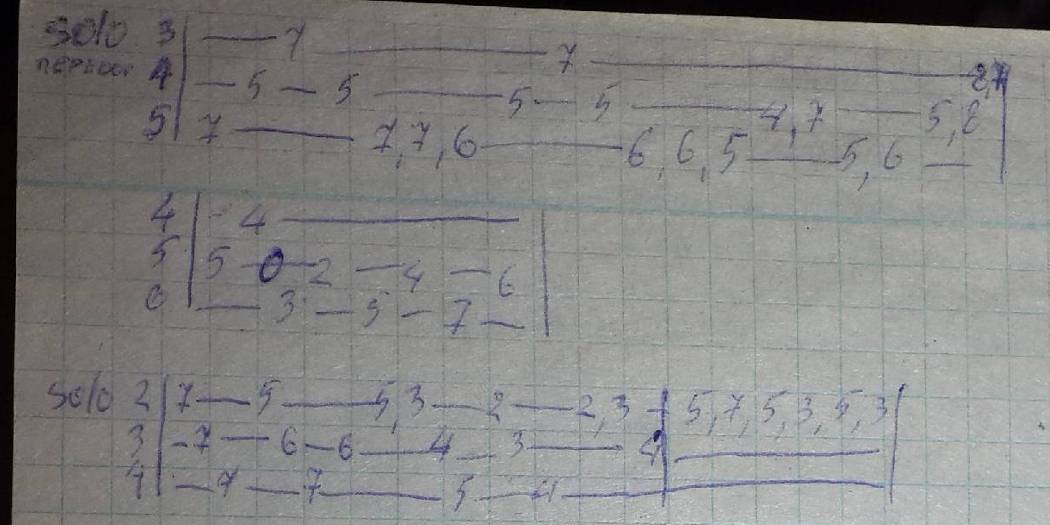 solo 3 | — 7 ——— 7 ——— 8,7 |
перебор 4 | — 5 — 5 ——— 5 — 5 ——— 4,7 — 5,8
5 | 7 ——— 7,7,6 ——— 6,6,5 ——— 5,6 —
4 | - 4 ——— |
5 | 5 — 0 — 2 — 4 — 6
6 | — 3 — 5 — 7 —
solo 2 | 7 — 5 ——— 5,3 — 2 — 2,3 - | 5,7,5,3,5,3 |
3 | - 7 — 6 — 6 — 4 — 3 ——— 4 | ———
4 | — 7 — 7 ——— 5 — 4 ——— | ———